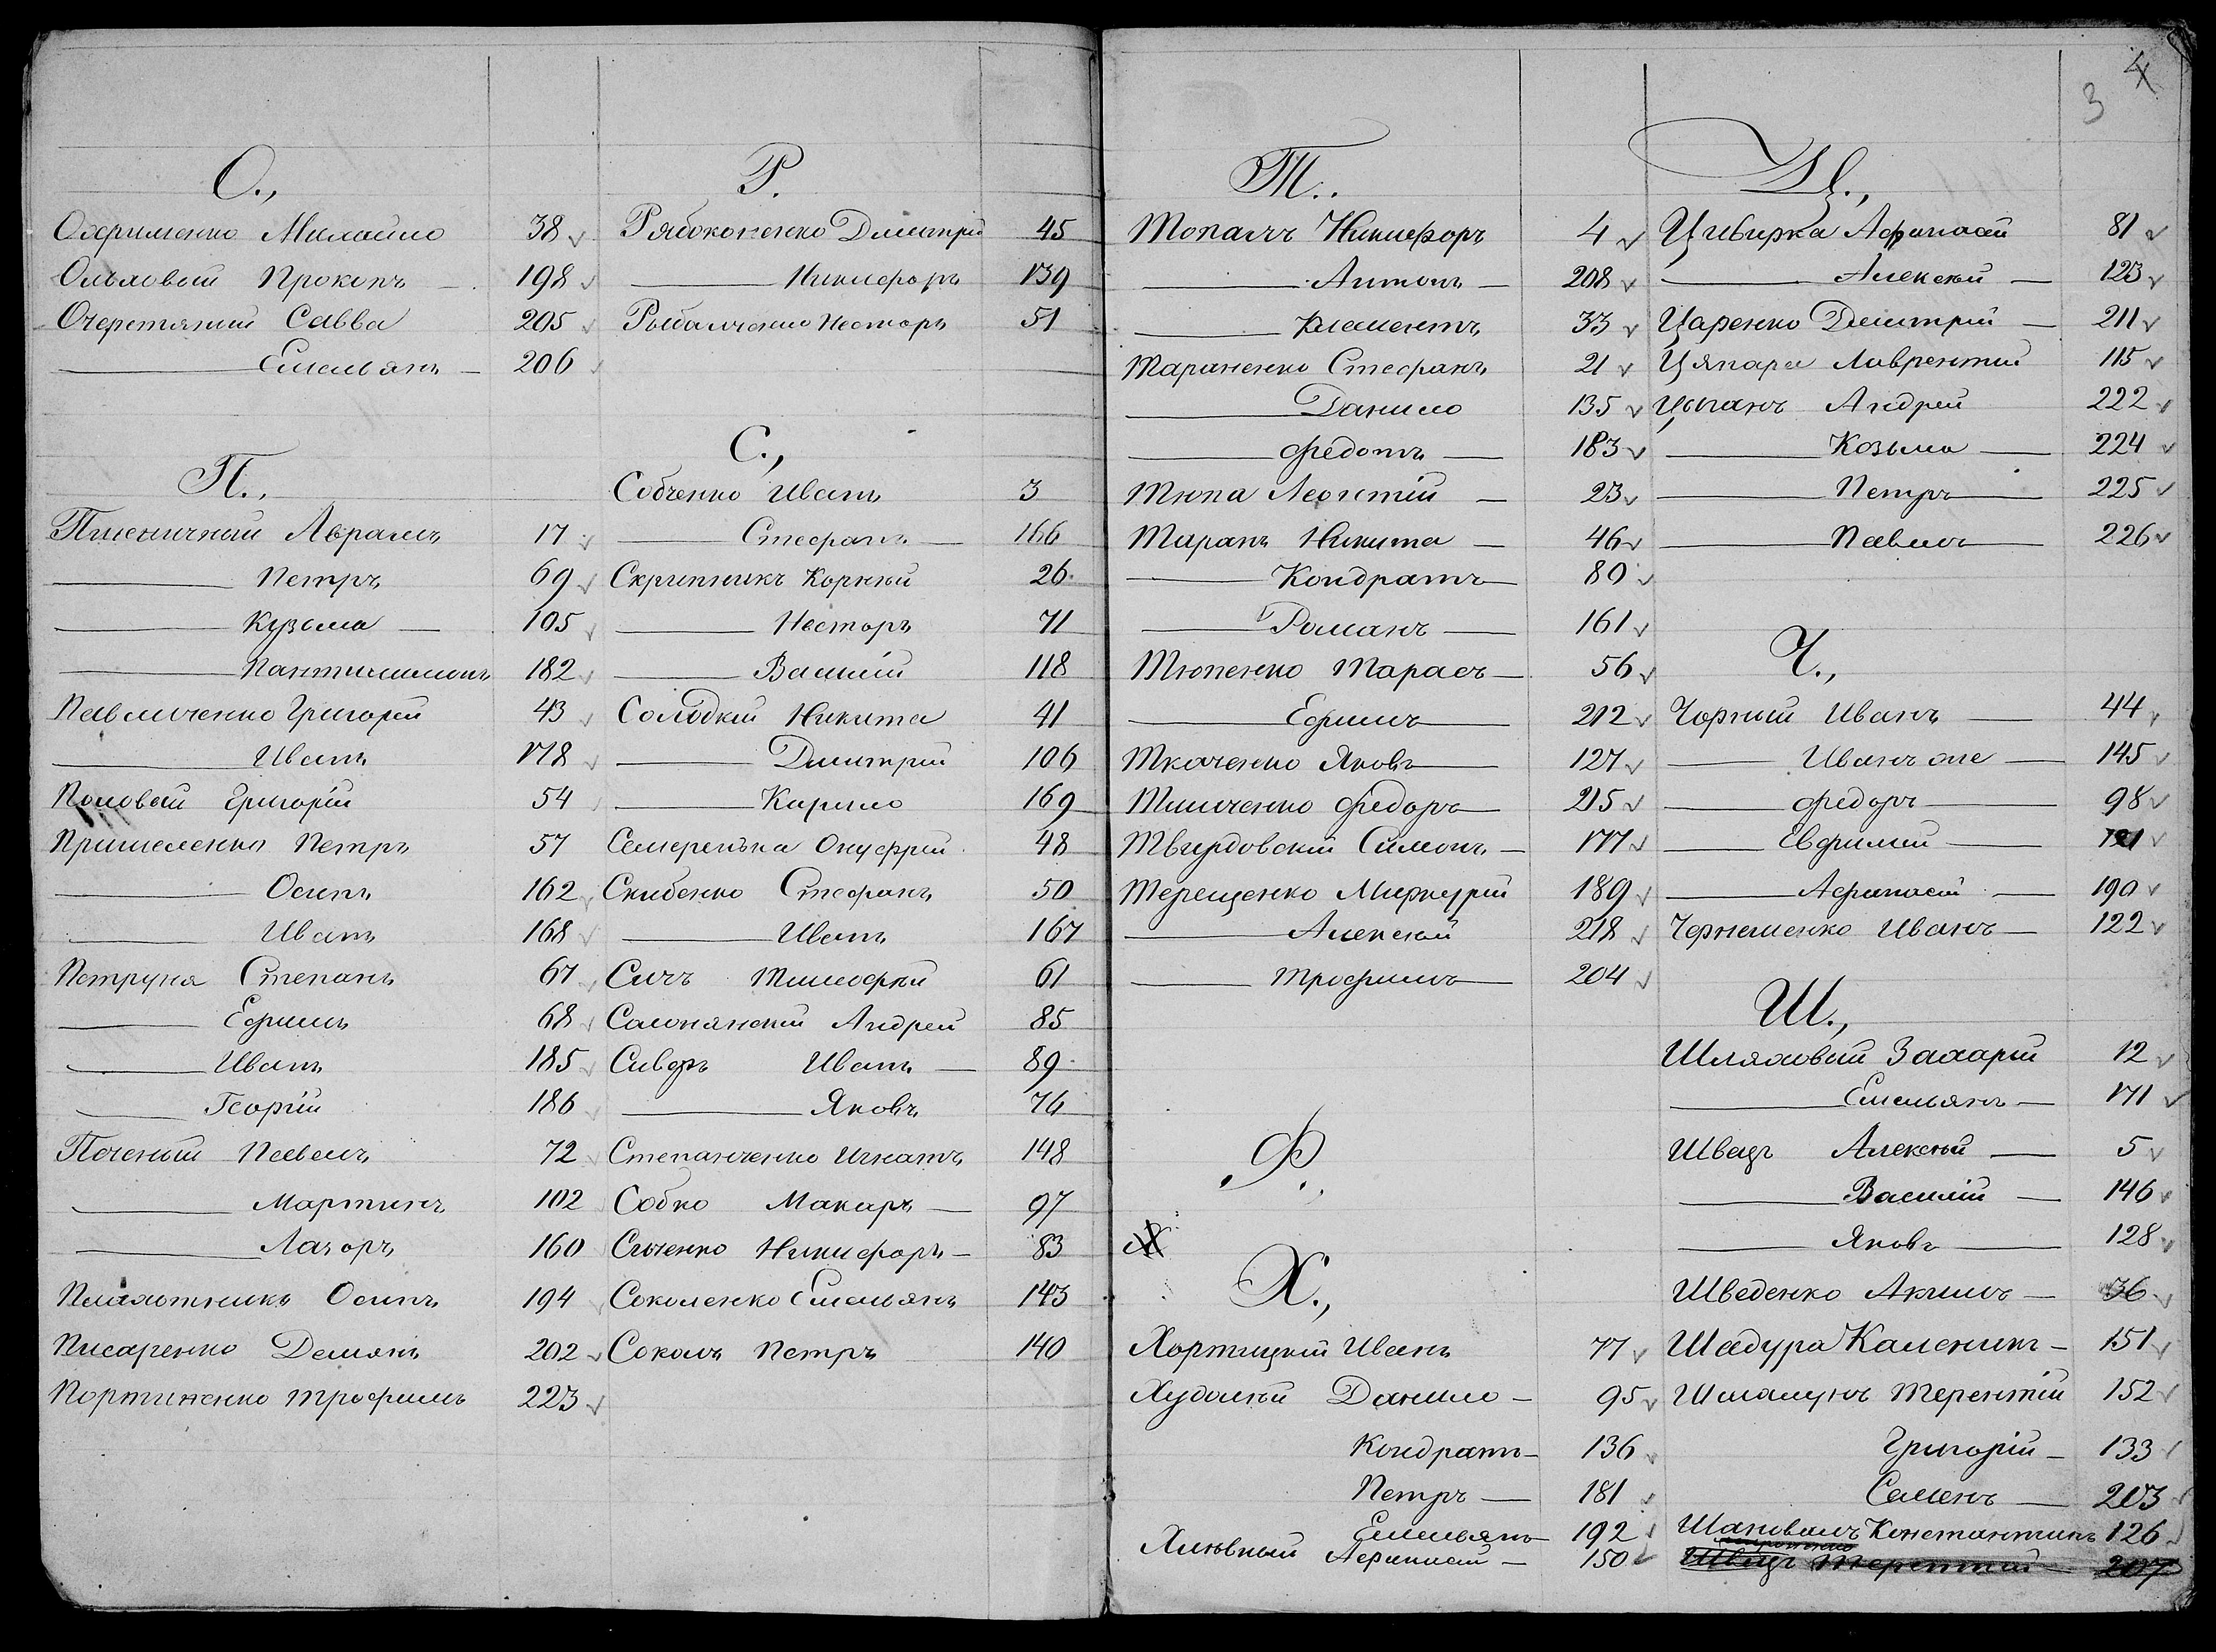 О.,
Охрименко Михайло 38
Ольховой Прокопъ — 198
Очеретяный Савва 205
— Емельянъ — 206
П.,
Пшеничный Аврамъ 17
— Петръ 69
— Кузьма — 105
— Пантилимонъ 182
Павличенко Григорій 43
— Иванъ 178
Половой Григорій 54
Пришеленко Петръ 57
— Осипъ 162
— Иванъ 168
Петруня Степанъ 67
— Ефимъ 68
— Иванъ 185
— Георгій 186
Поченый Павелъ 72
— Мартинъ 102
— Лазоръ 160
Плахотникъ Осипъ 194
Писаренко Демянъ 202
Портиненко Трофимъ 223
Р.
Рябоконенко Дмитрій 45
— Никифоръ 139
Рыбалченко Несторъ 51
С.,
Собченко Иванъ 3
— Стефанъ — 166
Скрипникъ Корнѣй 26
— Несторъ 71
— Василій 118
Солодкій Никита 41
— Дмитрій 106
— Кирило 169
Семеренька Онуфрій 48
Скибенко Стефанъ 50
— Иванъ 167
Сичъ Тимофѣй 61
Самнянскій Андрей 85
Сиверъ Иванъ — 89
— Яковъ 76
Степанченко Игнатъ 148
Собко Макаръ — 97
Сиченко Никифоръ — 83
Соколенко Емельянъ 143
Соколъ Петръ 140
3 4
Т..
Топалъ Никифоръ 4
— Антонъ — 208
— Климентъ 33
Тараненко Стефанъ 21
— Данило 135
— Федотъ — 183
Тюпа Леонтій — 23
Таранъ Никита — 46
— Кондратъ — 80
— Романъ — 161
Тюпенко Тарасъ — 56
— Ефимъ — 212
Ткаченко Яковъ — 127
Тимченко Федоръ — 215
Твердовскій Симонъ — 177
Терещенко Миркурій 189
— Алексѣй 218
— Трофимъ — 204
Ф.,
Х
Х.,
Хортицкій Иванъ 77
Худолѣй Данило — 95
Кондратъ — 136
Петръ — 181
Емельянъ — 192
Хливный Афанасій — 150
Ц.,
Цивирка Афанасій 81
— Алексѣй — 123
Царенко Дмитрій — 211
Цяпара Лаврентій 115
Цыганъ Андрей 222
— Козьма — 224
— Петръ — 225
— Павелъ — 226
Ч.,
Чорный Иванъ — 44
— Иванъ же — 145
— Федоръ — 98
— Евфимій —
— Афанасій — 190
Чернешенко Иванъ — 122
Ш.,
Шляховой Захарій 12
— Емельянъ — 171
Швецъ Алексѣй — 5
— Василій — 146
— Яковъ — 128
Шведенко Акимъ — 36
Шадура Каленикъ — 151
Шмалунъ Терентій 152
Григорій — 133
Семенъ — 203
Шаповалъ Константинъ 126
Швецъ Терентій — 207